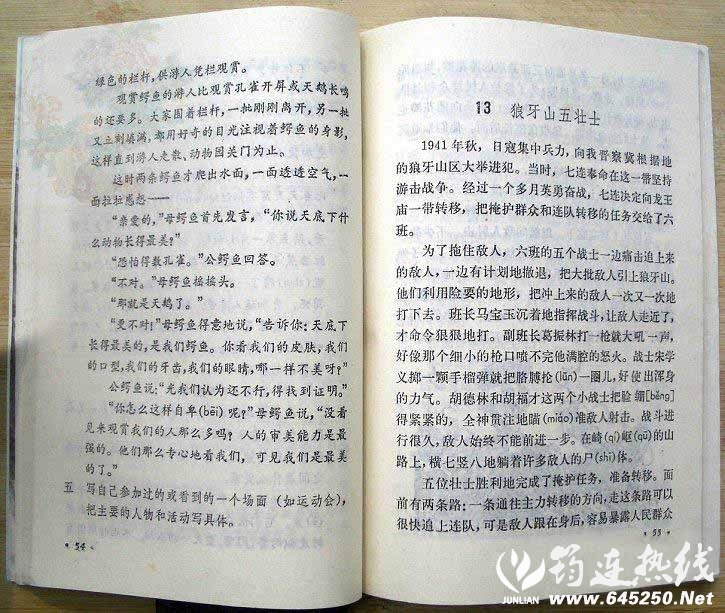 绿色的栏杆，供游人凭栏观赏。
观赏鳄鱼的游人比观赏孔雀开屏或天鹅长鸣
的还要多。大家围着栏杆，一批刚刚离开，另一批
又立刻填满，都用好奇的目光注视着鳄鱼的身影，
这样直到游人走散、动物园关门为止。
这时两条鳄鱼才爬出水面，一面透透空气，一
面拉拉惹惹——
“亲爱的，”母鳄鱼首先发言，“你说天底下什
么动物长得最美？”
“恐怕得数孔雀。”公鳄鱼回答。
“不对。”母鳄鱼摇摇头。
“那就是天鹅了。”
“更不对！”母鳄鱼得意地说，“告诉你：天底下
长得最美的，是我们鳄鱼。你看我们的皮肤，我们
的口型，我们的牙齿，我们的眼睛，哪一样不美呀？”
公鳄鱼说：“光我们认为还不行，得找到证明。”
“你怎么这样自卑(bēi)呢？”母鳄鱼说，“没看
见来观赏我们的人那么多吗？人的审美能力是最
强的。他们那么专心地看我们，可见我们是最美
的了。”
五 写自己参加过的或看到的一个场面（如运动会），
把主要的人物和活动写具体。
·54·
13 狼牙山五壮士
1941年秋，日寇集中兵力，向我晋察冀根据地
的狼牙山区大举进犯。当时，七连奉命在这一带坚持
游击战争。经过一个多月英勇奋战，七连决定向龙王
庙一带转移，把掩护群众和连队转移的任务交给了六
班。
为了拖住敌人，六班的五个战士一边痛击追上来
的敌人，一边有计划地撤退，把大批敌人引上狼牙山。
他们利用险要的地形，把冲上来的敌人一次又一次地
打下去。班长马宝玉沉着地指挥战斗，让敌人走近了，
才命令狠狠地打。副班长葛振林打一枪就大吼一声，
好像那个细小的枪口喷不完他满腔的怒火。战士宋学
义掷一颗手榴弹就把胳膊抡(lūn)一圈儿，好使出浑身
的力气。胡德林和胡福才这两个小战士把脸绷[běng]
得紧紧的，全神贯注地瞄(miáo)准敌人射击。战斗进
行很久，敌人始终不能前进一步。在崎(qí)岖(qū)的山
路上，横七竖八地躺着许多敌人的尸(shī)体。
五位壮士胜利地完成了掩护任务，准备转移。面
前有两条路：一条通往主力转移的方向，走这条路可以
很快追上连队，可是敌人跟在身后，容易暴露人民群众
·55·
筠连热线
JUNLIAN www.645250.Net